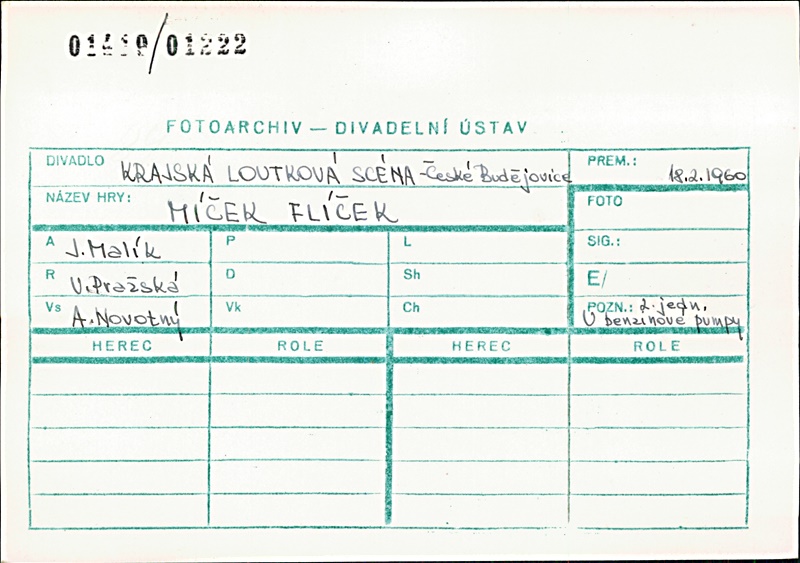 01419/01222
FOTOARCHIV — DIVADELNÍ ÚSTAV
DIVADLO KRAJSKÁ LOUTKOVÁ SCÉNA - České Budějovice PREM.: 18.2.1960
NÁZEV HRY: MÍČEK FLÍČEK FOTO
A J. Malík P L SIG.:
R V. Pražská D Sh E/
Vs A. Novotný Vk Ch POZN.: 2. jedn.
U benzinové pumpy
HEREC ROLE HEREC ROLE